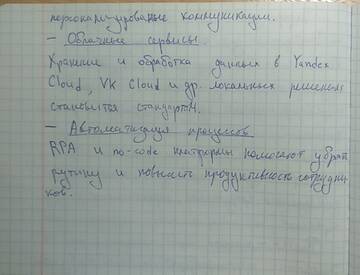 персонализированные коммуникации.
- Облачные сервисы.
Хранение и обработка данных в Yandex
Cloud, VK Cloud и др. локальных решениях
становится стандартом.
- Автоматизация процессов
RPA и no-code платформы помогают убрать
рутину и повысить продуктивность сотрудни
ков.